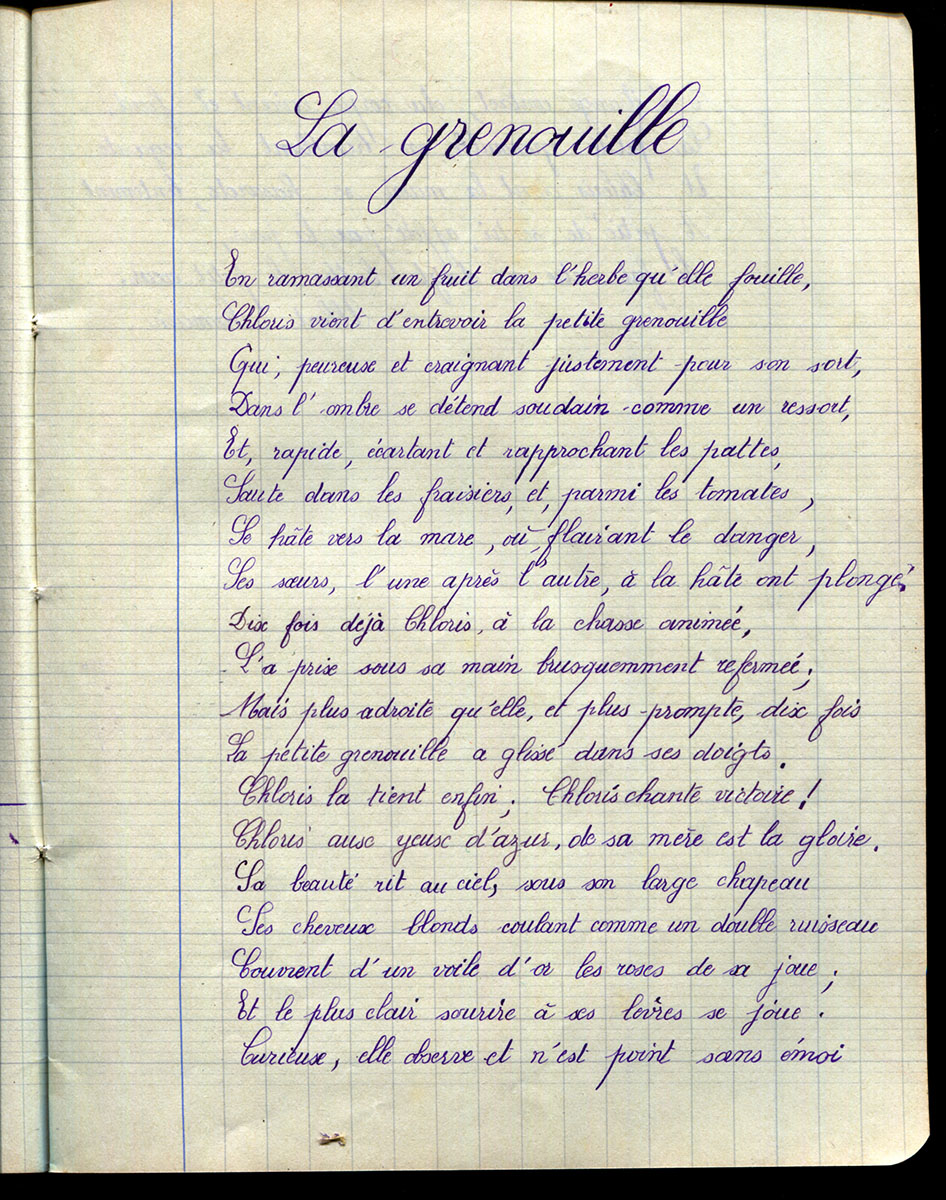 La grenouille
En ramassant un fruit dans l'herbe qu'elle fouille,
Chloris vient d'entrevoir la petite grenouille
Qui, peureuse et craignant justement pour son sort,
Dans l'ombre se détend soudain comme un ressort,
Et, rapide, écartant et rapprochant les pattes,
Saute dans les fraisiers, et, parmi les tomates,
Se hâte vers la mare, où, flairant le danger,
Ses sœurs, l'une après l'autre, à la hâte ont plongé.
Dix fois déjà Chloris, à la chasse animée,
L'a prise sous sa main brusquemment refermée;
Mais plus adroite qu'elle, et plus prompte, dix fois
La petite grenouille a glissé dans ses doigts.
Chloris la tient enfin; Chloris chante victoire!
Chloris aux yeux d'azur, de sa mère est la gloire.
Sa beauté rit au ciel, sous son large chapeau
Ses cheveux blonds coulant comme un double ruisseau
Couvrent d'un voile d'or les roses de sa joue;
Et le plus clair sourire à ses lèvres se joue.
Curieuse, elle observe et n'est point sans émoi